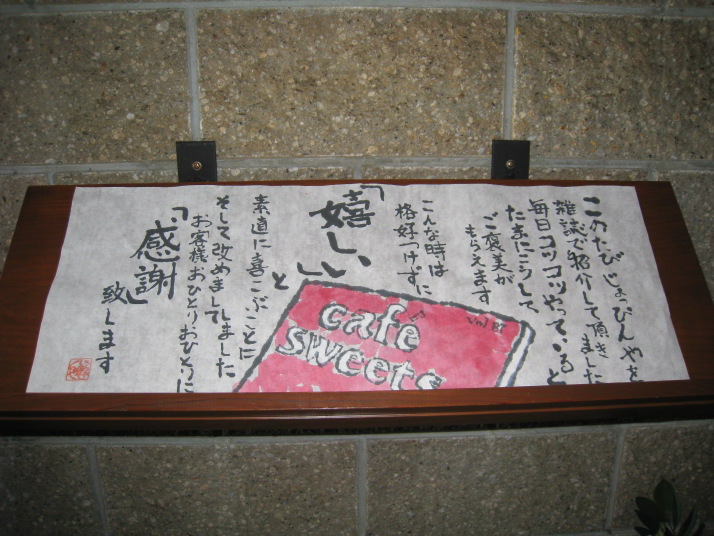 このたびじょうびんやを
雑誌で紹介して頂きました
毎日コツコツやっていると
たまにこうして
ご褒美が
もらえます
こんな時は
格好つけずに
「嬉しい」
と
素直に喜こぶことに
そして改めましてしました
お客様おひとりおひとりに
「感謝」
致します
cafe
sweets